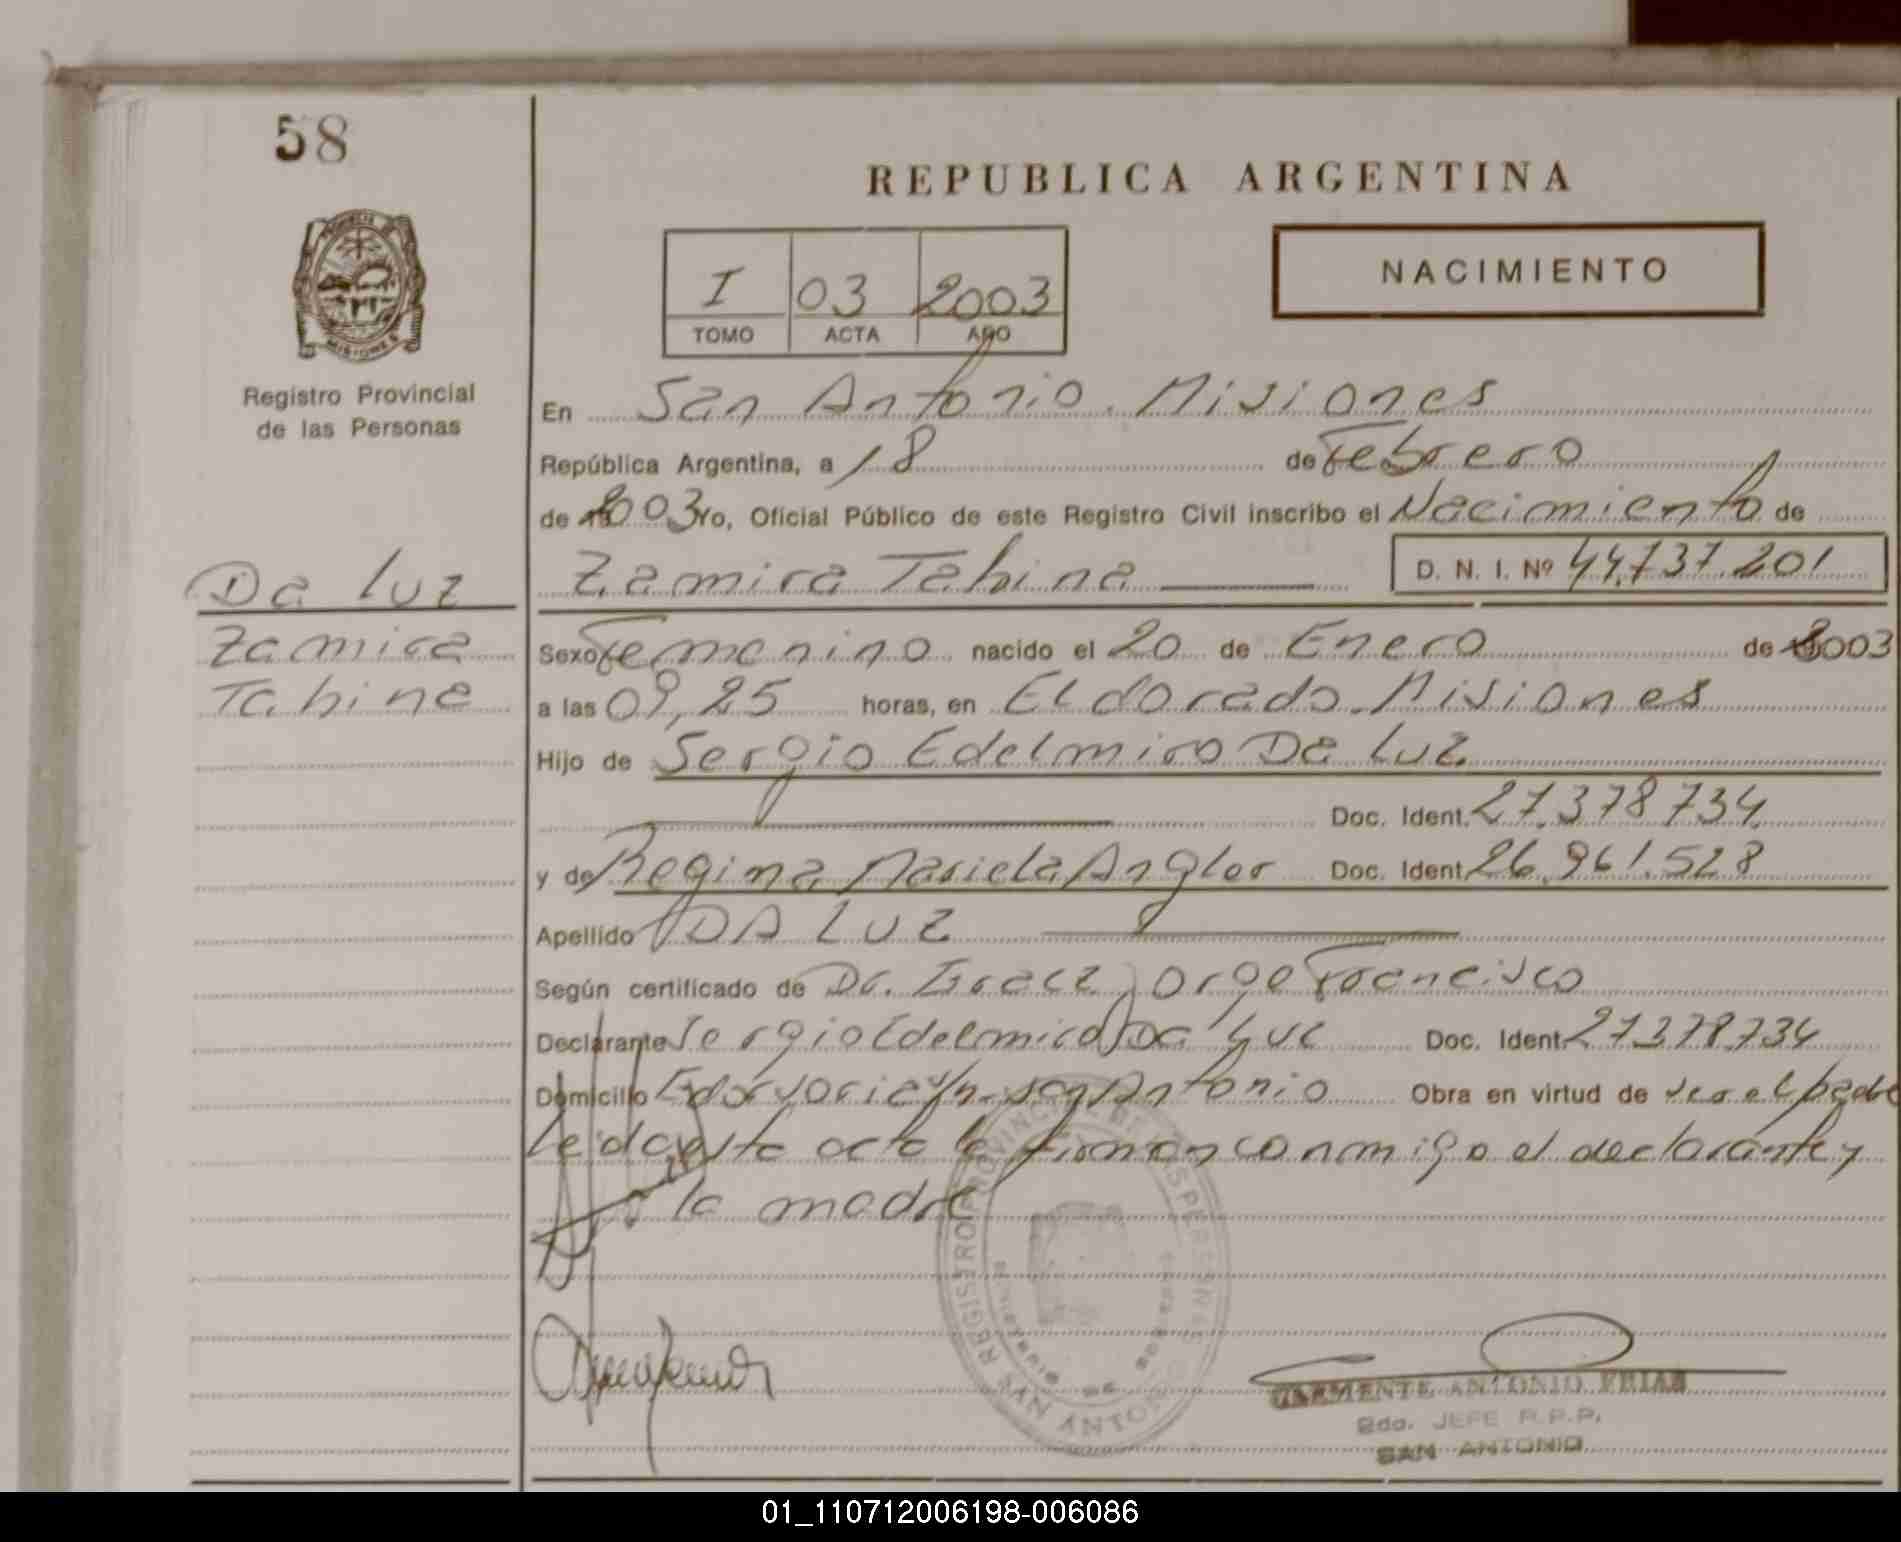 58
REPUBLICA ARGENTINA
MISIONES
Registro Provincial
de las Personas
I 03 2003
TOMO ACTA AÑO
NACIMIENTO
En San Antonio. Misiones
República Argentina, a 18 de Febrero
de 2003 Yo, Oficial Público de este Registro Civil inscribo el Nacimiento de
Da Luz
Zamira
Tahina
Zamira Tahina D. N. I. Nº 44.737.201
Sexo Femenino nacido el 20 de Enero de 2003
a las 09,25 horas, en Eldorado. Misiones
Hijo de Sergio Edelmiro Da Luz
Doc. Ident. 27.378.734.
y de Regina Mariela Angler Doc. Ident. 26.961.528
Apellido DA LUZ
Según certificado de Dr. Jorge Francisco
Declarante Sergio Edelmiro Da Luz Doc. Ident. 27.378.734
Domicilio San Antonio Obra en virtud de ser el padre
Leida esta acta la firman conmigo el declarante y
la madre
REGISTRO PROVINCIAL DE LAS PERSONAS
MINISTERIO DE GOBIERNO
SAN ANTONIO
CLEMENTE ANTONIO FRIAS
2do. JEFE R.P.P.
SAN ANTONIO
01_110712006198-006086